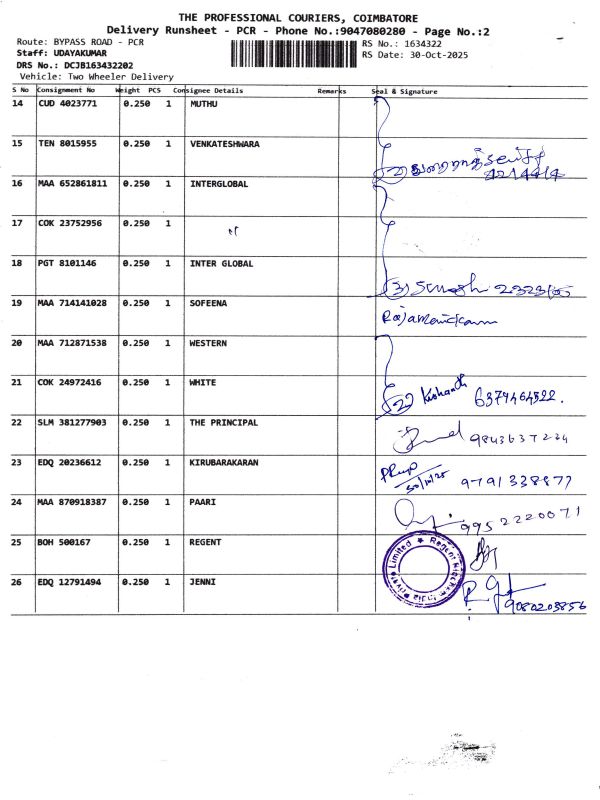 THE PROFESSIONAL COURIERS, COIMBATORE
Delivery Runsheet - PCR - Phone No.:9047080280 - Page No.:2
Route: BYPASS ROAD - PCR
RS No.: 1634322
Staff: UDAYAKUMAR
RS Date: 30-Oct-2025
DRS No.: DCJB163432202
Vehicle: Two Wheeler Delivery
S No Consignment No Weight PCS Consignee Details Remarks Seal & Signature
14 CUD 4023771 0.250 1 MUTHU
15 TEN 8015955 0.250 1 VENKATESHWARA
2
16 MAA 652861811 0.250 1 INTERGLOBAL
17 COK 23752956 0.250 1
18 PGT 8101146 0.250 1 INTER GLOBAL
3
19 MAA 714141028 0.250 1 SOFEENA
20 MAA 712871538 0.250 1 WESTERN
21 COK 24972416 0.250 1 WHITE
2 6374464522.
22 SLM 381277903 0.250 1 THE PRINCIPAL
9843637224
23 EDQ 20236612 0.250 1 KIRUBARAKARAN
30/10/25 9791338877
24 MAA 870918387 0.250 1 PAARI
9952220071
25 BOH 500167 0.250 1 REGENT
26 EDQ 12791494 0.250 1 JENNI
9080203856
1